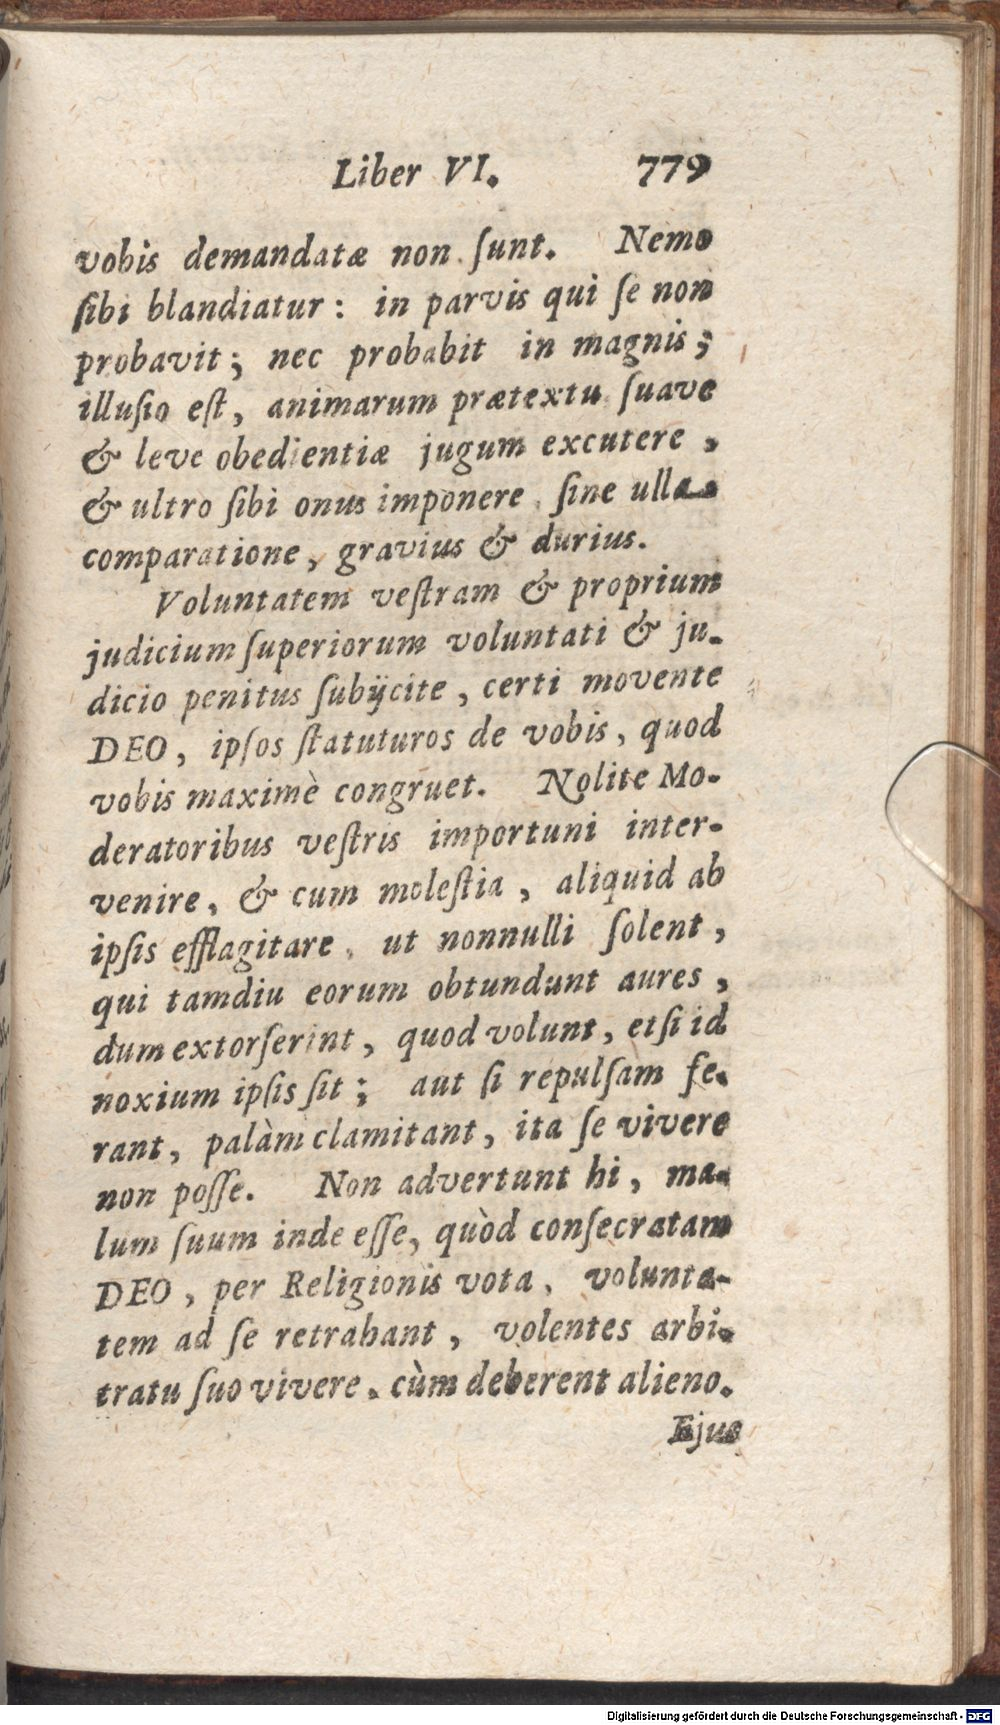 Liber VI. 779
vobis demandatæ non ſunt. Nemo
ſibi blandiatur: in parvis qui ſe non
probavit; nec probabit in magnis;
illuſio eſt, animarum prætextu ſuave
& leve obedientiæ jugum excutere,
& ultro ſibi onus imponere, ſine ulla
comparatione, gravius & durius.
Voluntatem veſtram & proprium
judicium ſuperiorum voluntati & ju-
dicio penitus ſubijcite, certi movente
DEO, ipſos ſtatuturos de vobis, quod
vobis maximè congruet. Nolite Mo-
deratoribus veſtris importuni inter-
venire, & cum moleſtia, aliquid ab
ipſis efflagitare, ut nonnulli ſolent,
qui tamdiu eorum obtundunt aures,
dum extorſerint, quod volunt, etſi id
noxium ipſis ſit; aut ſi repulſam fe-
rant, palàm clamitant, ita ſe vivere
non poſſe. Non advertunt hi, ma-
lum ſuum inde eſſe, quòd conſecratam
DEO, per Religionis vota, volunta-
tem ad ſe retrahant, volentes arbi-
tratu ſuo vivere, cùm deberent alieno.
Ejus
Digitalisierung gefördert durch die Deutsche Forschungsgemeinschaft - DFG